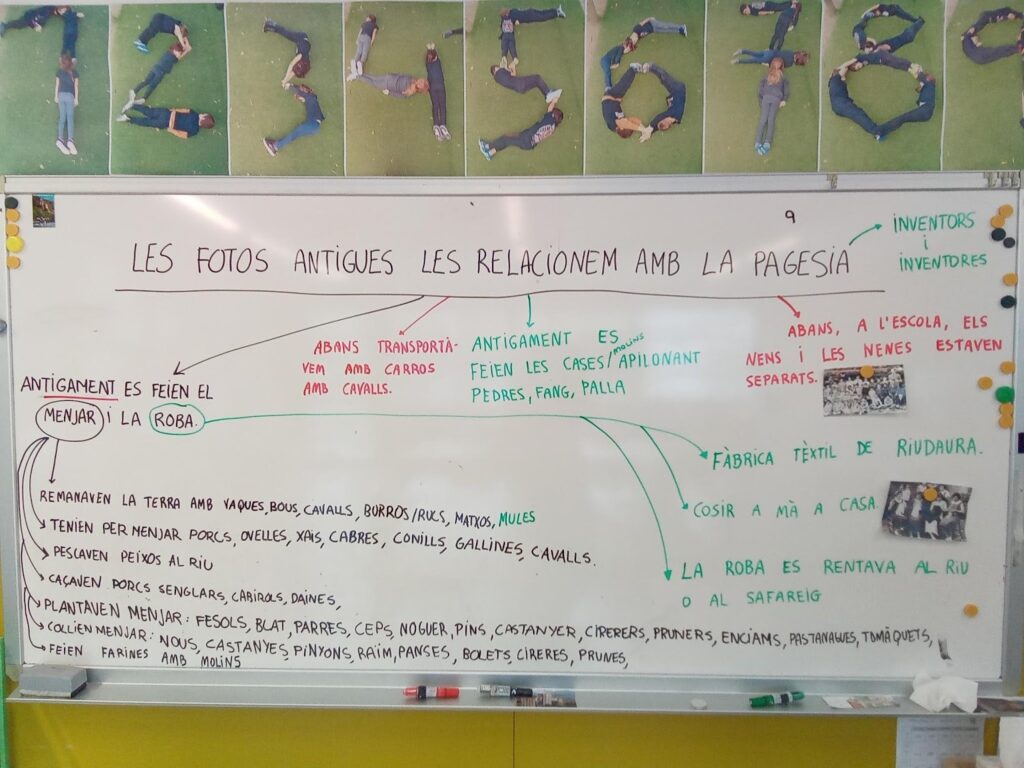 1 2 3 4 5 6 7 8 9
9
INVENTORS
i
INVENTORES
LES FOTOS ANTIGUES LES RELACIONEM AMB LA PAGESIA
ABANS TRANSPORTÀ-
VEM AMB CARROS
AMB CAVALLS.
ANTIGAMENT ES
FEIEN LES CASES/MOLINS APILONANT
PEDRES, FANG, PALLA
ABANS, A L'ESCOLA, ELS
NENS I LES NENES ESTAVEN
SEPARATS.
ANTIGAMENT ES FEIEN EL
MENJAR I LA ROBA.
FÀBRICA TÈXTIL DE RIUDAURA.
COSIR A MÀ A CASA
LA ROBA ES RENTAVA AL RIU
O AL SAFAREIG
REMANAVEN LA TERRA AMB VAQUES, BOUS, CAVALLS, BURROS/RUCS, MATXOS, MULES
TENIEN PER MENJAR PORCS, OVELLES, XAIS, CABRES, CONILLS, GALLINES, CAVALLS.
PESCAVEN PEIXOS AL RIU
CAÇAVEN PORCS SENGLARS, CABIROLS, DAINES,
PLANTAVEN MENJAR: FESOLS, BLAT, PARRES, CEPS, NOGUER, PINS, CASTANYER, CIRERERS, PRUNERS, ENCIAMS, PASTANAGUES, TOMÀQUETS,
COLLIEN MENJAR: NOUS, CASTANYES, PINYONS, RAÏM, PANSES, BOLETS, CIRERES, PRUNES,
FEIEN FARINES AMB MOLINS